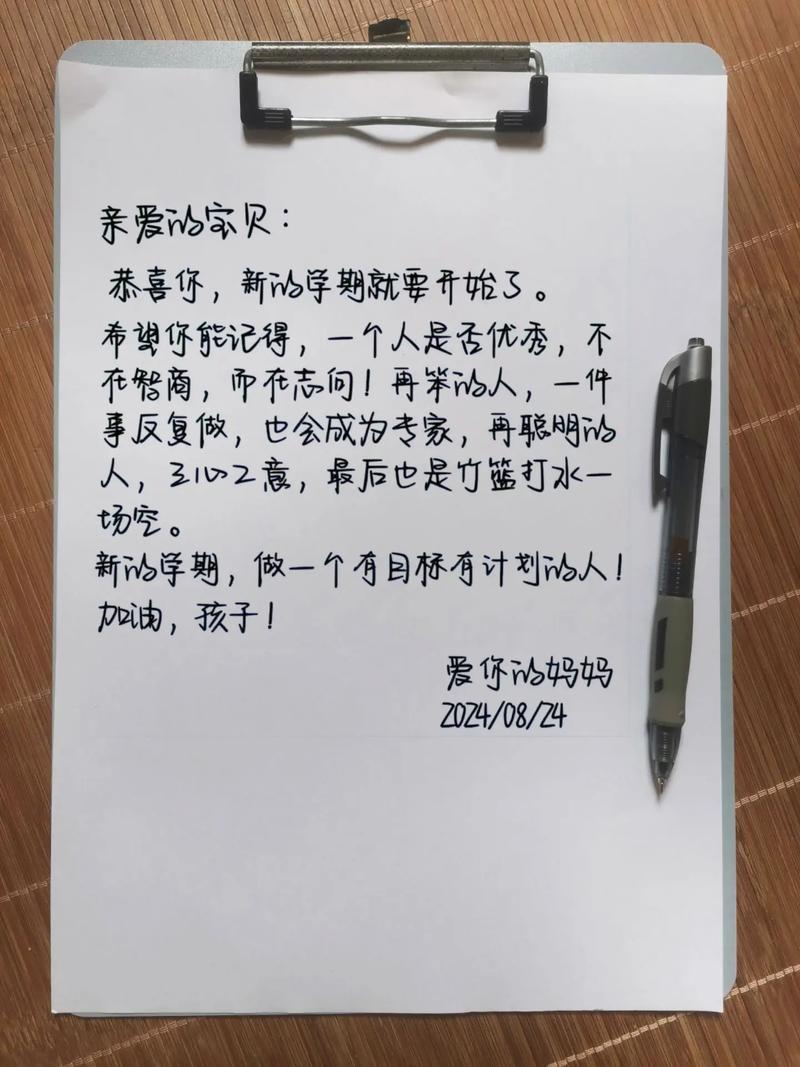 亲爱的宝贝：
恭喜你，新的学期就要开始了。
希望你能记得，一个人是否优秀，不
在智商，而在志向！再笨的人，一件
事反复做，也会成为专家，再聪明的
人，三心二意，最后也是竹篮打水一
场空。
新的学期，做一个有目标有计划的人！
加油，孩子！
爱你的妈妈
2024/08/24